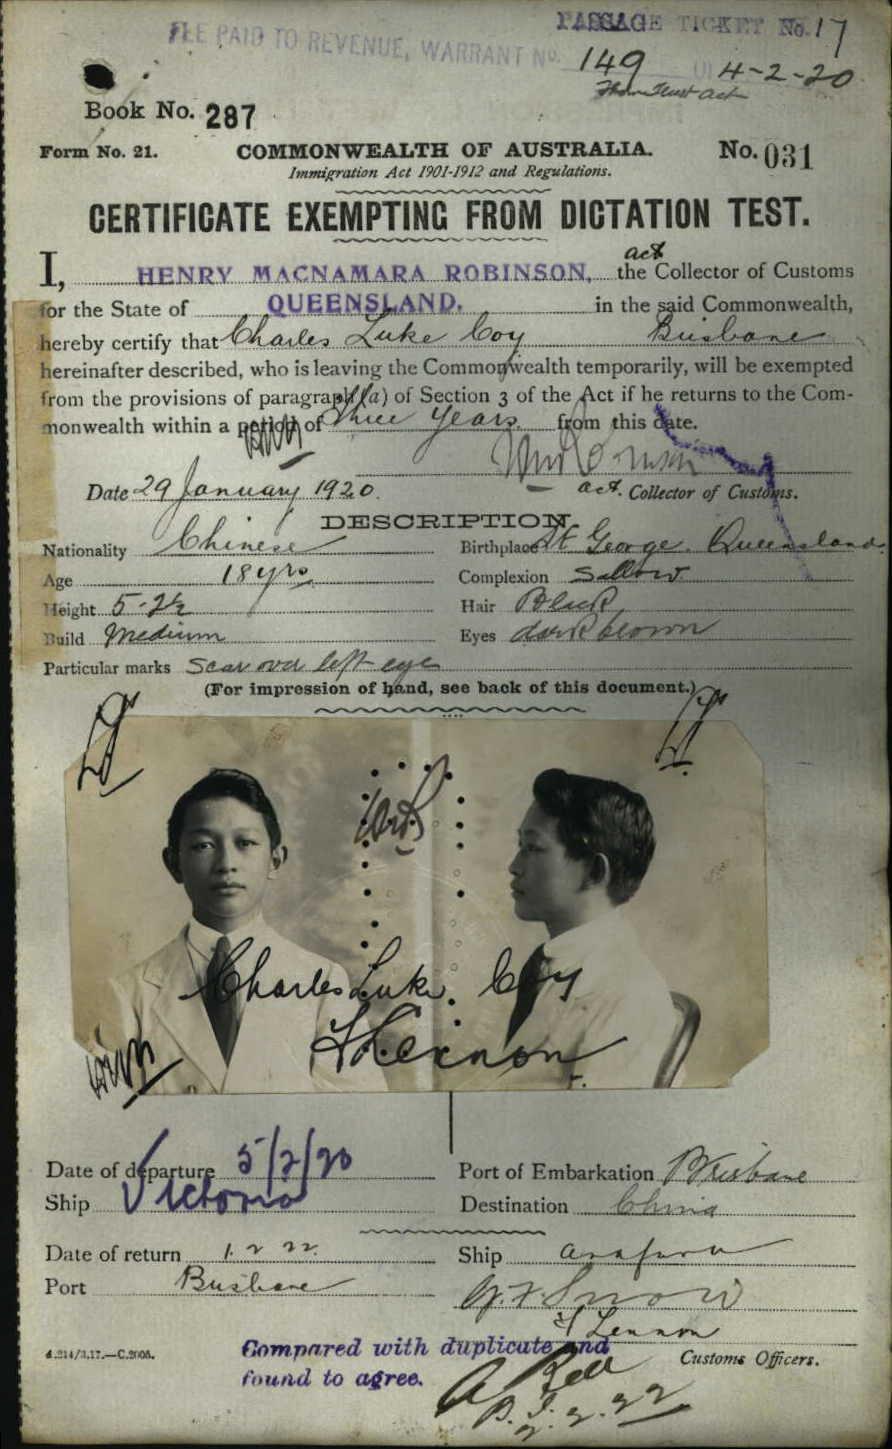 PASSAGE TICKET No. 17
FEE PAID TO REVENUE, WARRANT No.
149 4-2-20
Book No. 287
Form No. 21. COMMONWEALTH OF AUSTRALIA. No. 031
Immigration Act 1901-1912 and Regulations.
CERTIFICATE EXEMPTING FROM DICTATION TEST.
act
I, HENRY MACNAMARA ROBINSON, the Collector of Customs
for the State of QUEENSLAND. in the said Commonwealth,
hereby certify that Charles Luke Coy Brisbane
hereinafter described, who is leaving the Commonwealth temporarily, will be exempted
from the provisions of paragraph (a) of Section 3 of the Act if he returns to the Com-
monwealth within a period of three years from this date.
Date 29 January 1920. act. Collector of Customs.
DESCRIPTION.
Nationality Chinese Birthplace St George. Queensland.
Age 18 yrs Complexion Sallow
Height 5-2½ Hair Black
Build Medium Eyes dark brown
Particular marks Scar over left eye
(For impression of hand, see back of this document.)
Charles Luke Coy
Date of departure 5/2/20 Port of Embarkation Brisbane
Ship Victoria Destination China
Date of return 1. 2 22. Ship Arafura
Port Brisbane
W. F. Snow
Lennon
4.214/3.17.—C.2006. Compared with duplicate and Customs Officers.
found to agree.
A Bell
2.2.22